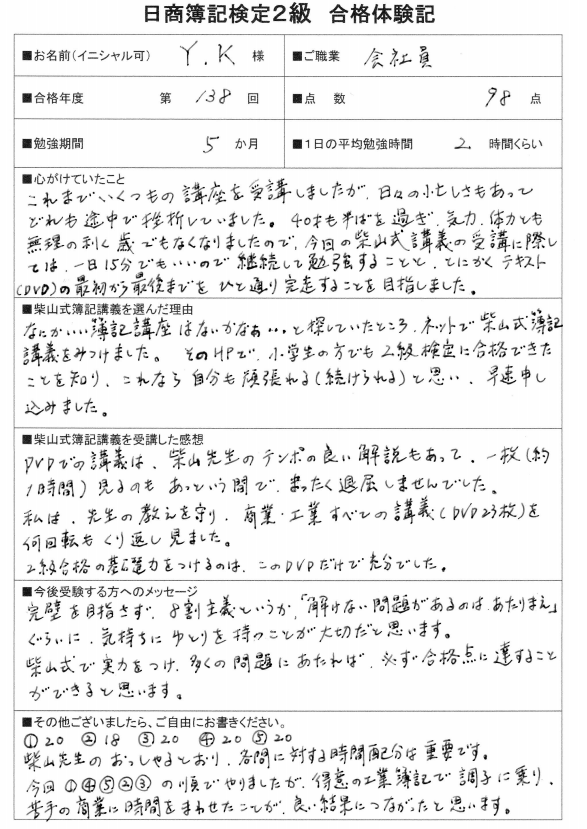 日商簿記検定2級 合格体験記
■お名前(イニシャル可) Y.K 様 ■ご職業 会社員
■合格年度 第 138 回 ■点 数 98 点
■勉強期間 5 か月 ■1日の平均勉強時間 2 時間くらい
■心がけていたこと
これまでいくつもの講座を受講しましたが、日々の忙しさもあって
どれも途中で挫折していました。40才も半ばを過ぎ、気力、体力とも
無理の利く歳でもなくなりましたので、今回の柴山式講義の受講に際し
ては、一日15分でもいいので継続して勉強することと、とにかくテキスト
(DVD)の最初から最後までをひと通り完走することを目指しました。
■柴山式簿記講義を選んだ理由
なにかいい簿記講座はないかなぁ…と探していたところ、ネットで柴山式簿記
講義をみつけました。そのHPで、小学生の方でも2級検定に合格できた
ことを知り、これなら自分も頑張れる(続けられる)と思い、早速申し
込みました。
■柴山式簿記講義を受講した感想
DVDでの講義は、柴山先生のテンポの良い解説もあって、一枚(約
1時間)見るのもあっという間で、まったく退屈しませんでした。
私は、先生の教えを守り、商業・工業すべての講義(DVD23枚)を
何回転もくり返し見ました。
2級合格の基礎力をつけるのは、このDVDだけで充分でした。
■今後受験する方へのメッセージ
完璧を目指さず、8割主義というか、「解けない問題があるのは、あたりまえ」
ぐらいに、気持ちにゆとりを持つことが大切だと思います。
柴山式で実力をつけ、多くの問題にあたれば、必ず合格点に達すること
ができると思います。
■その他ございましたら、ご自由にお書きください。
①20 ②18 ③20 ④20 ⑤20
柴山先生のおっしゃるとおり、各問に対する時間配分は重要です。
今回①④⑤②③の順でやりましたが、得意の工業簿記で調子に乗り、
苦手の商業に時間をまわせたことが、良い結果につながったと思います。